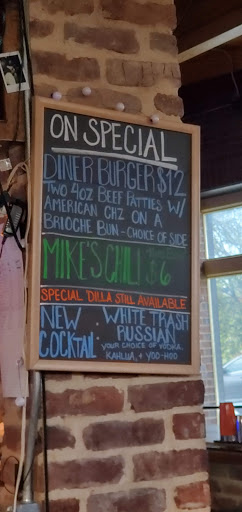 ON SPECIAL
DINER BURGER $12
TWO 4OZ BEEF PATTIES W/
AMERICAN CHZ ON A
BRIOCHE BUN - CHOICE OF SIDE
MIKE'S CHILI $6
SPECIAL DILLA STILL AVAILABLE
NEW · WHITE TRASH
COCKTAIL · RUSSIAN
YOUR CHOICE OF VODKA,
KAHLUA, + YOO-HOO